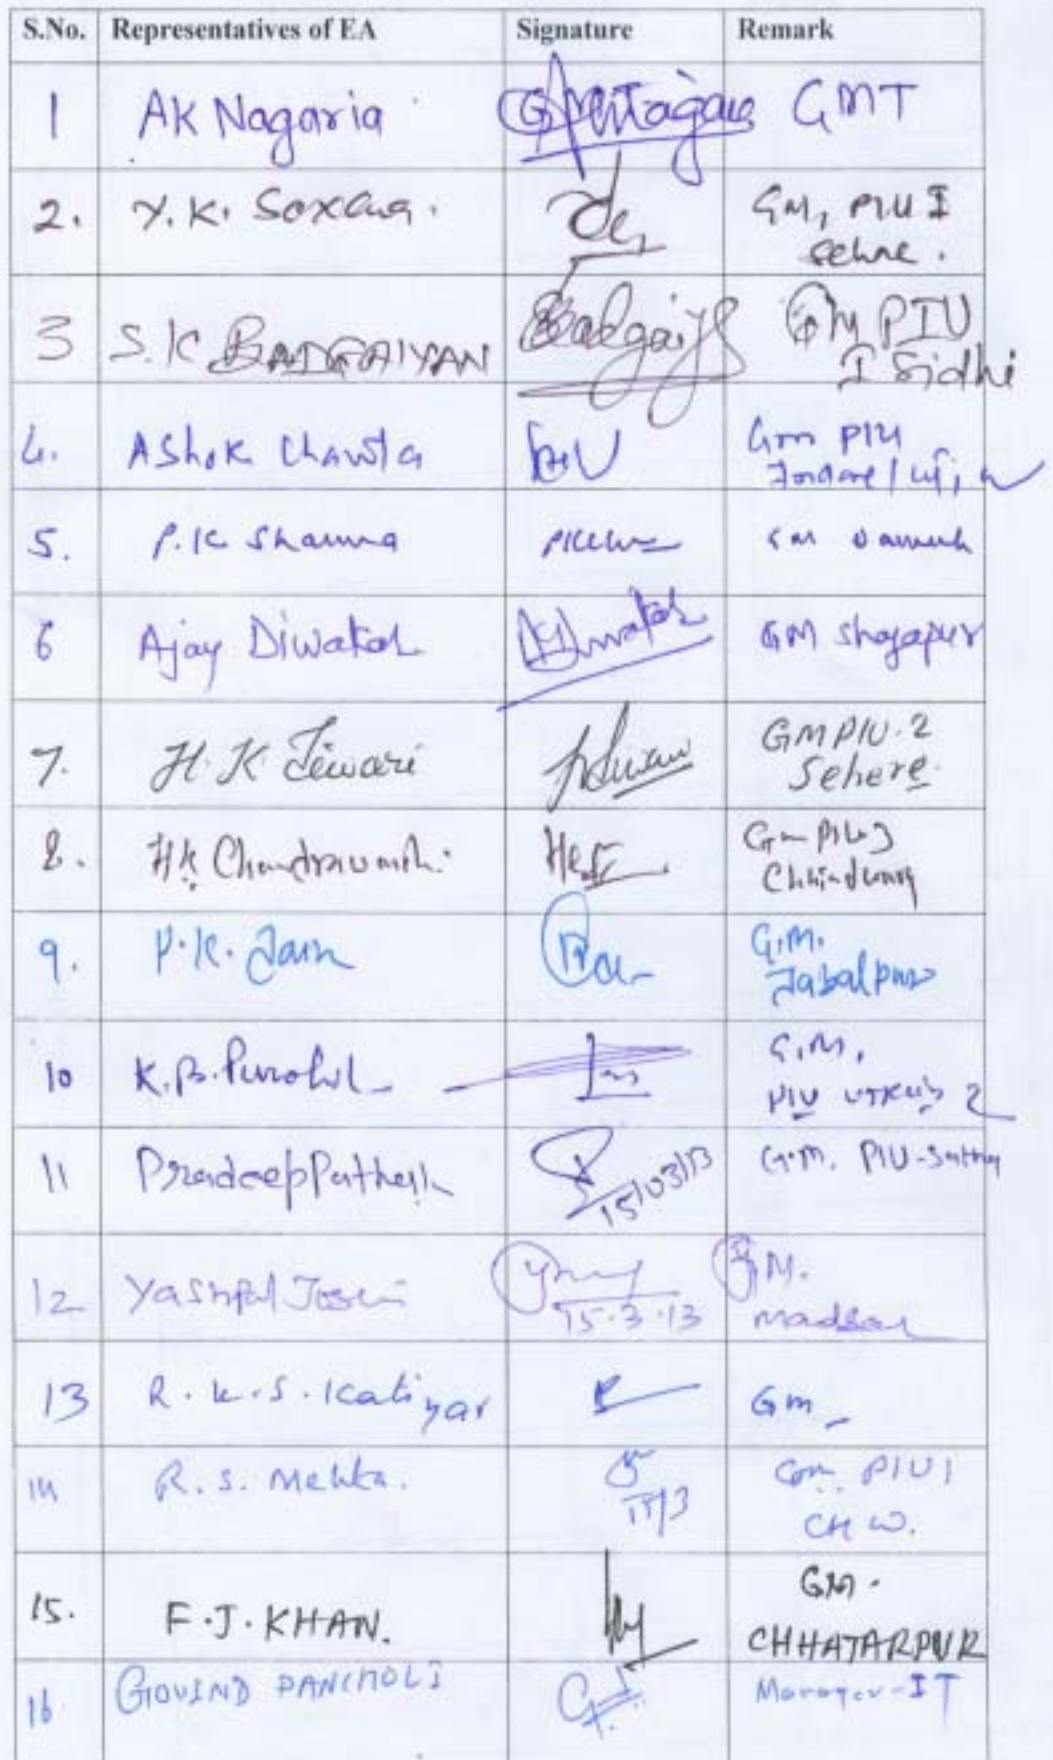 S.No. Representatives of EA Signature Remark
1 AK Nagaria GMT
2. Y.K. Saxena. GM, PIU I
Sehore.
3 S.K BADGAIYAN Badgaiy GM PIU
I Sidhi
4. Ashok Chawla GM PIU
5. P.K Sharma GM
6 Ajay Diwakar Diwakar GM Shajapur
7. H.K Tewari GM PIU.2
Sehere.
8. HK Gm PIU3
Chhindwara
9. P.K. Jain G.M.
Jabalpur
10 K.B. Purohit G.M,
PIU 2
11 Pradeep Pathak 15/03/13 G.M. PIU-Satna
12 Yashpal Joshi 15.3.13 GM.
13 R.K.S. Katiyar Gm
14 R.S. Mehta. 15/3 GM PIU1
CHW.
15. F.J. KHAN. GM.
CHHATARPUR
16 GOVIND PANCHOLI Manager-IT